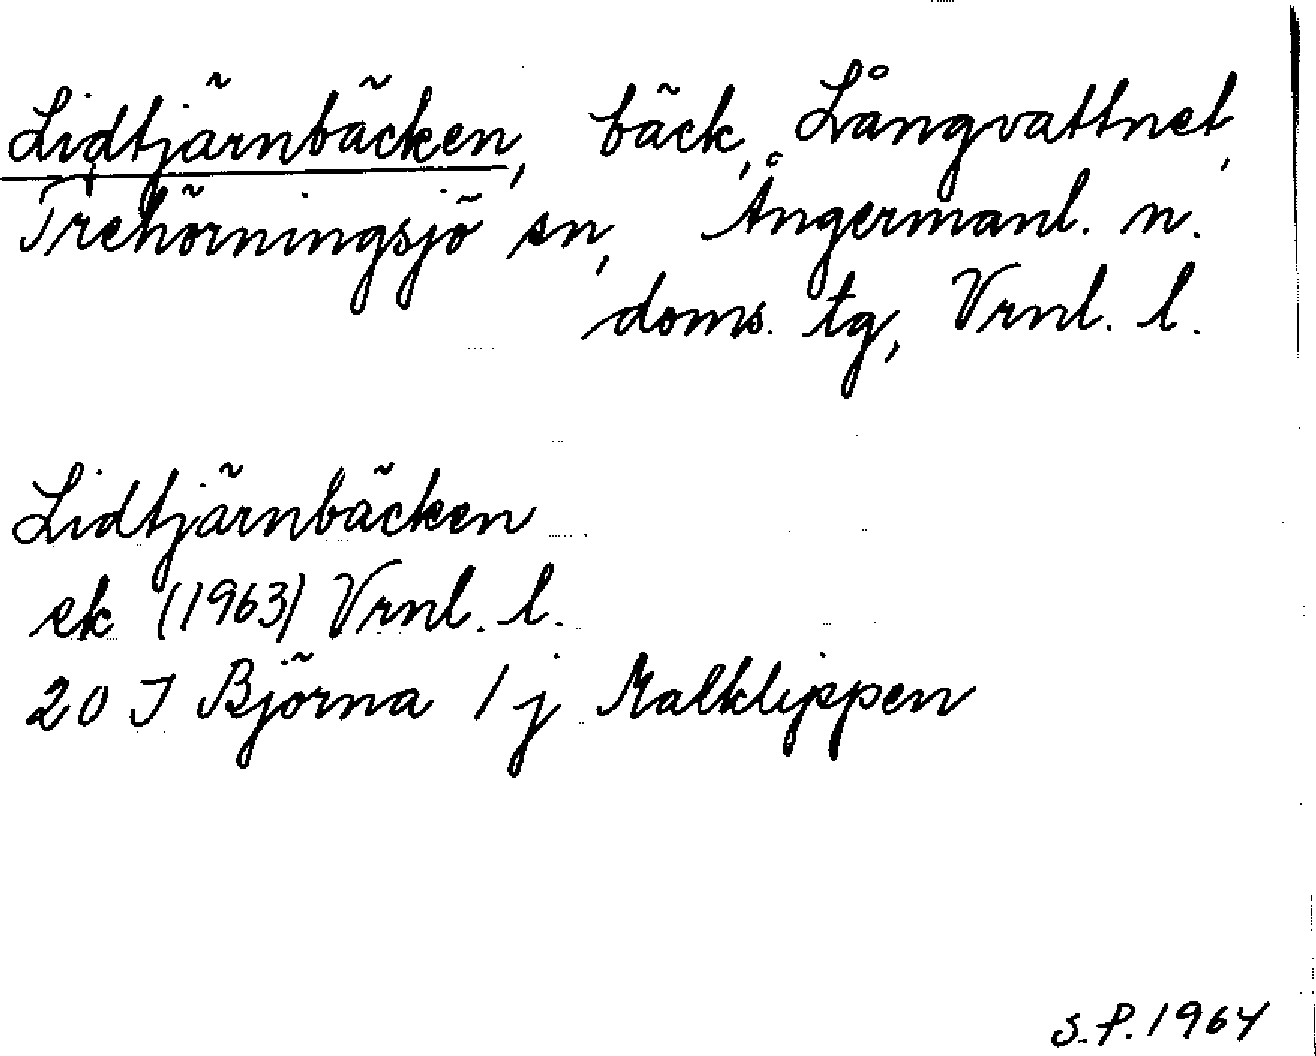 Lidtjärnbäcken, bäck, Långvattnet,
Trehörningsjö sn, Ångermanl. n.
doms. tg, Vrnl. l.
Lidtjärnbäcken
ek (1963) Vrnl. l.
20 J Björna 1 j Malklippen
S.P. 1964